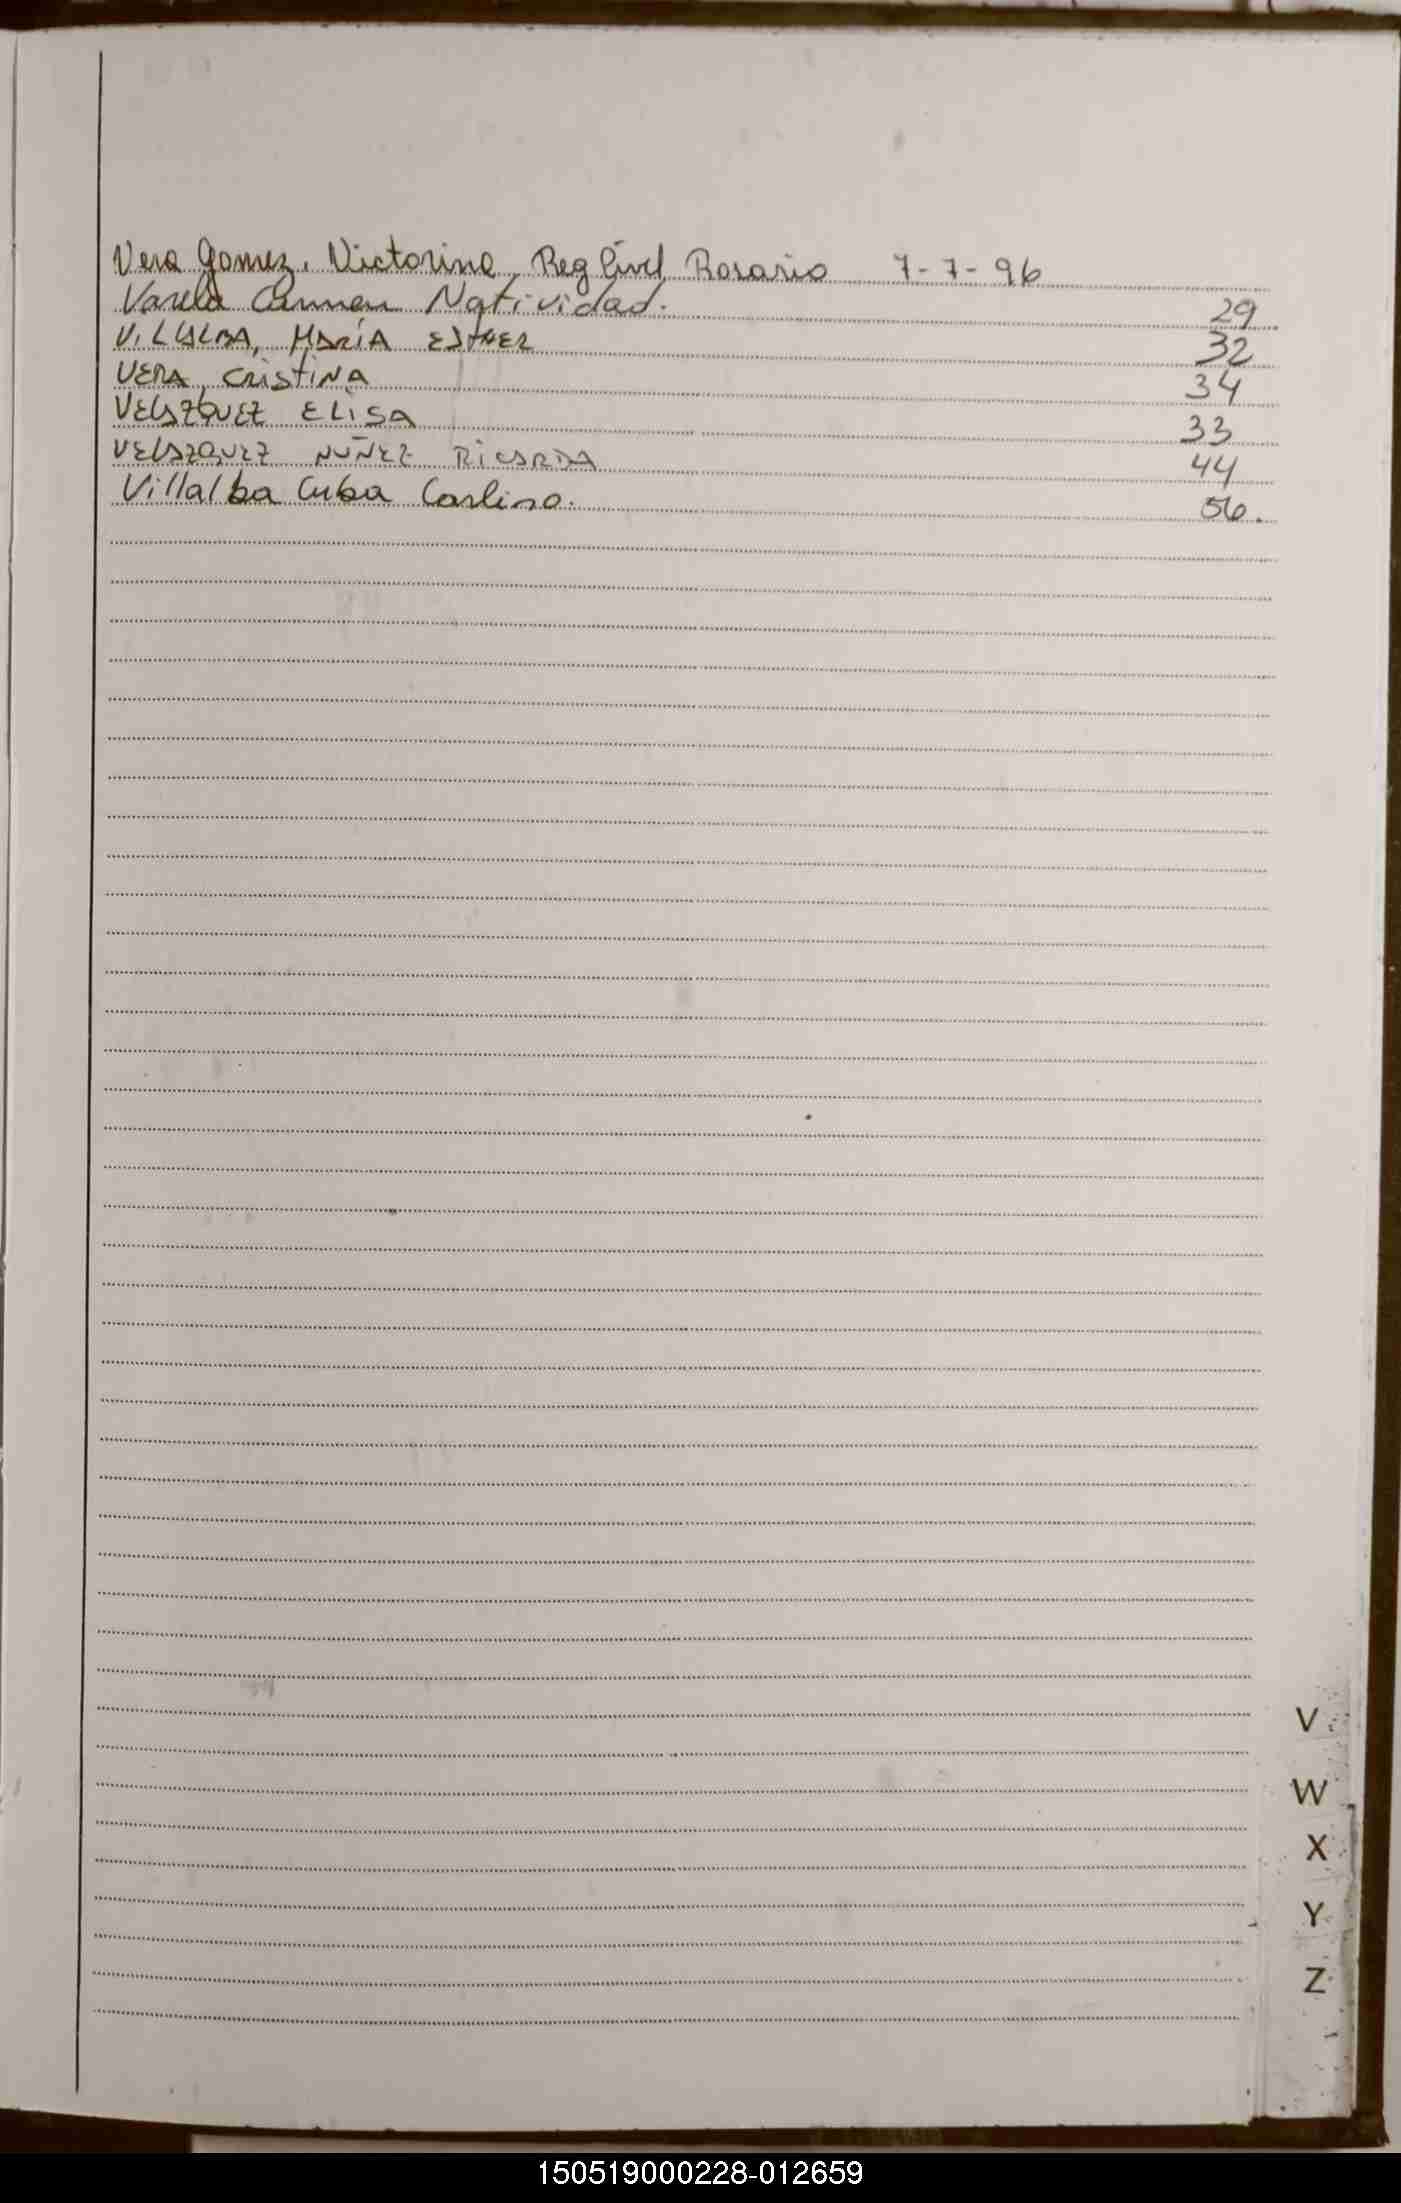 Vera Gomez, Victorina, Reg Civil Rosario 7-7-96
Varela Carmen Natividad. 29
VILLALBA, MARÍA ESTHER 32
VERA, CRISTINA 34
VELAZQUEZ ELISA 33
VELAZQUEZ NUÑEZ RICARDA 44
Villalba Cuba Carlina. 56.
V
W
X
Y
Z
150519000228-012659